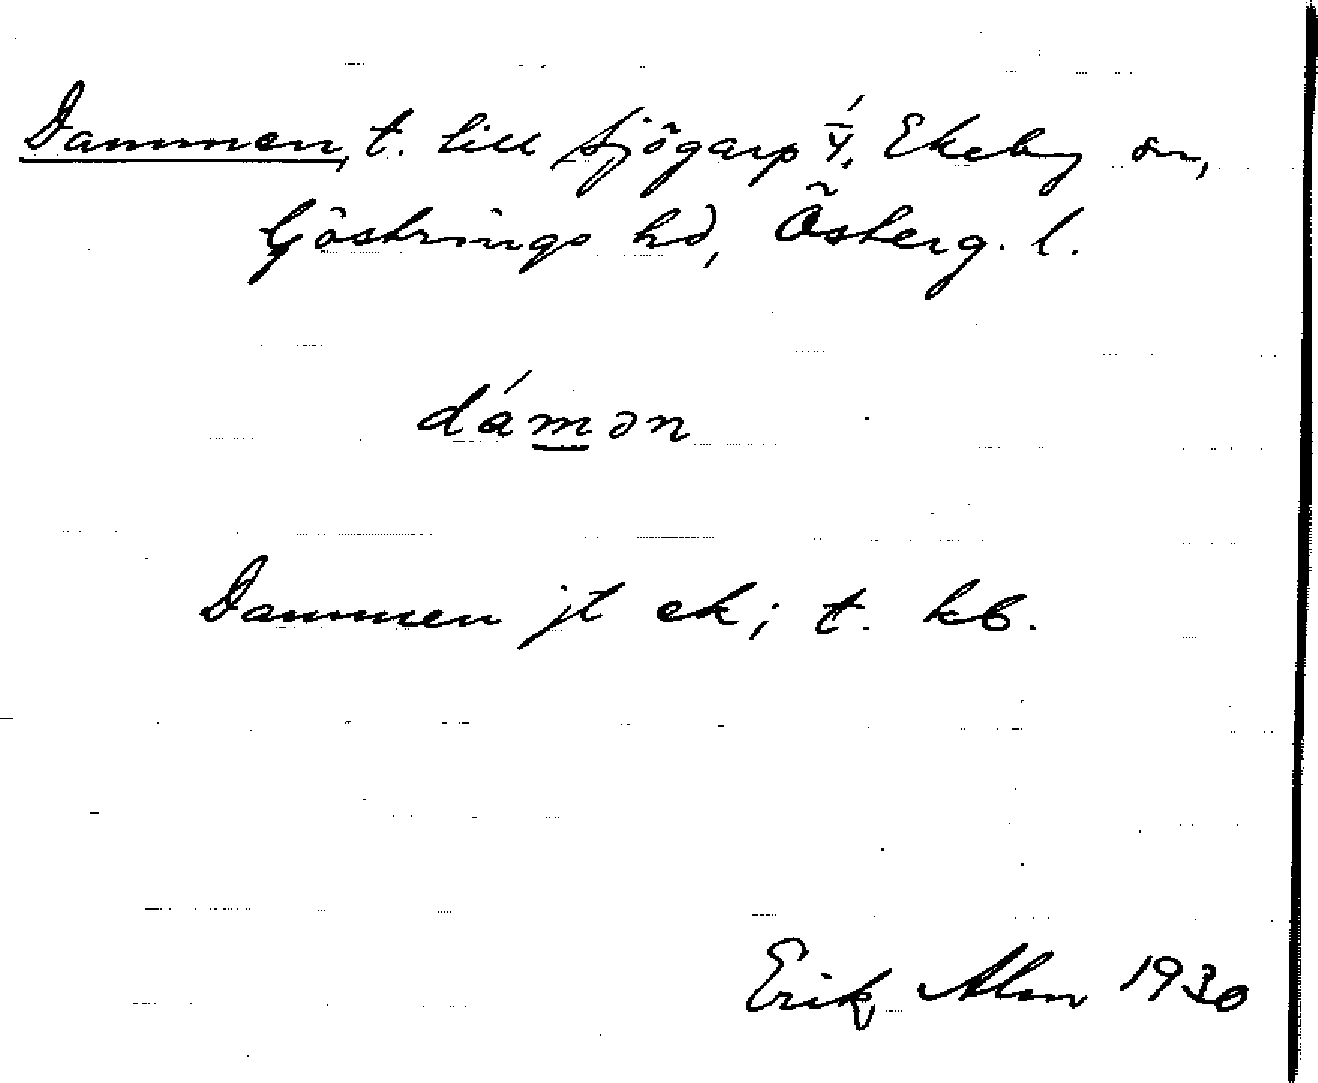 Dammen, t. till Sjögarp 1/4, Ekeby sn,
Göstrings hd, Österg. l.
dámən
Dammen jt ek; t. kb.
Erik Alm 1930